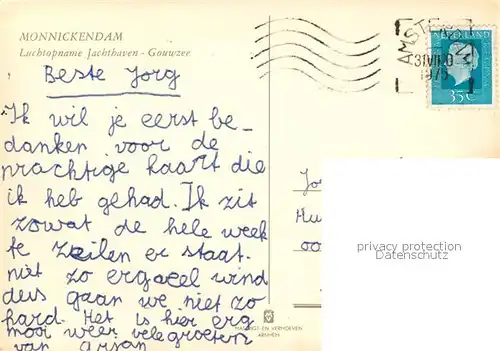 MONNICKENDAM
Luchtopname Jachthaven - Gouwzee
Beste Jorg
Ik wil je eerst be-
danken voor de
prachtige kaart die
ik heb gehad. Ik zit
zowat de hele week
te zeilen er staat
niet zo ergveel wind
dus gaan we niet zo
hard. Het is hier erg
mooi weer vele groeten
van
AMSTE
31 VII 0
1975
NEDERLAND
35c
privacy protection
Datenschutz
HAGRIJST EN VERHOEVEN
ARNHEM